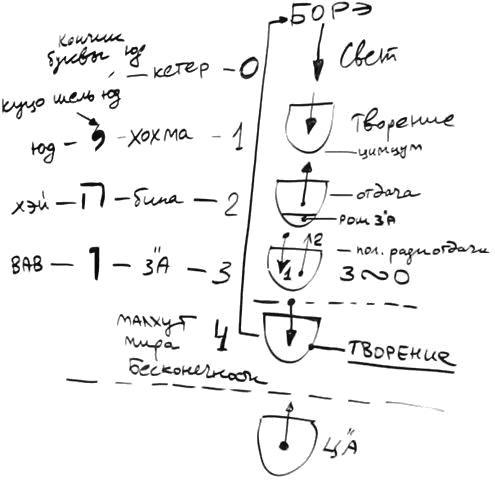 БОРЭ
кончик
буквы юд
кетер – 0
Свет
куцо шель юд
юд – י – хохма – 1
Творение
цимцум
хэй – ח – бина – 2
отдача
рош З"А
ВАВ – ו – З"А – 3
1 2
пол. ради отдачи
3 ~ 0
малхут 4
мира
Бесконечности
ТВОРЕНИЕ
Ц"А